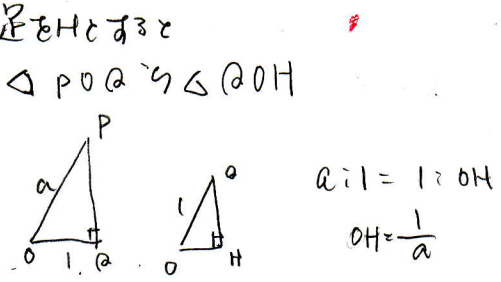 足をHとすると
△POQ∽△QOH
P
a
O
1
Q
Q
1
O
H
a:1=1:OH
OH=1/a